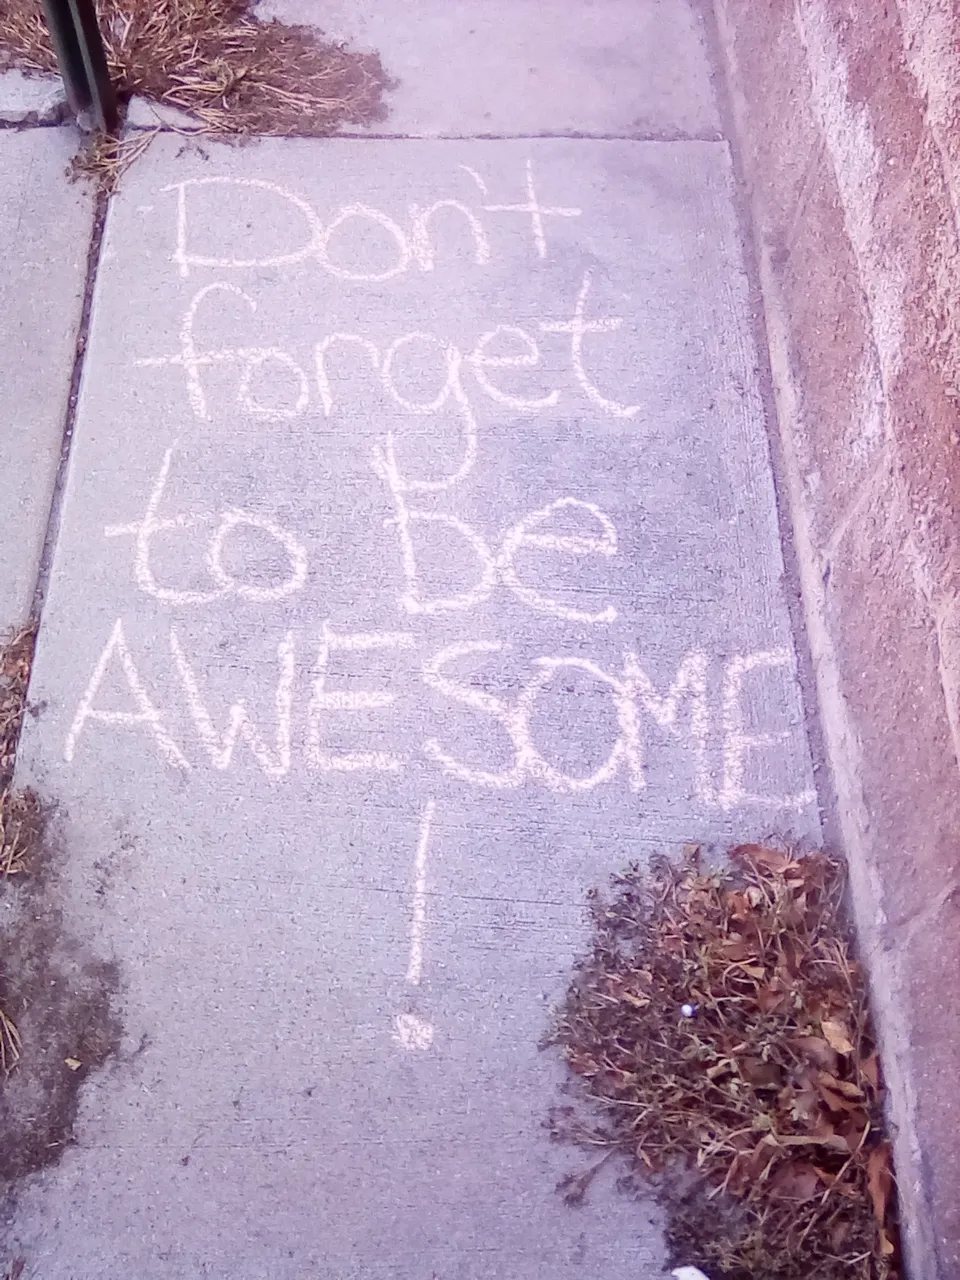 Don't
forget
to be
AWESOME
!